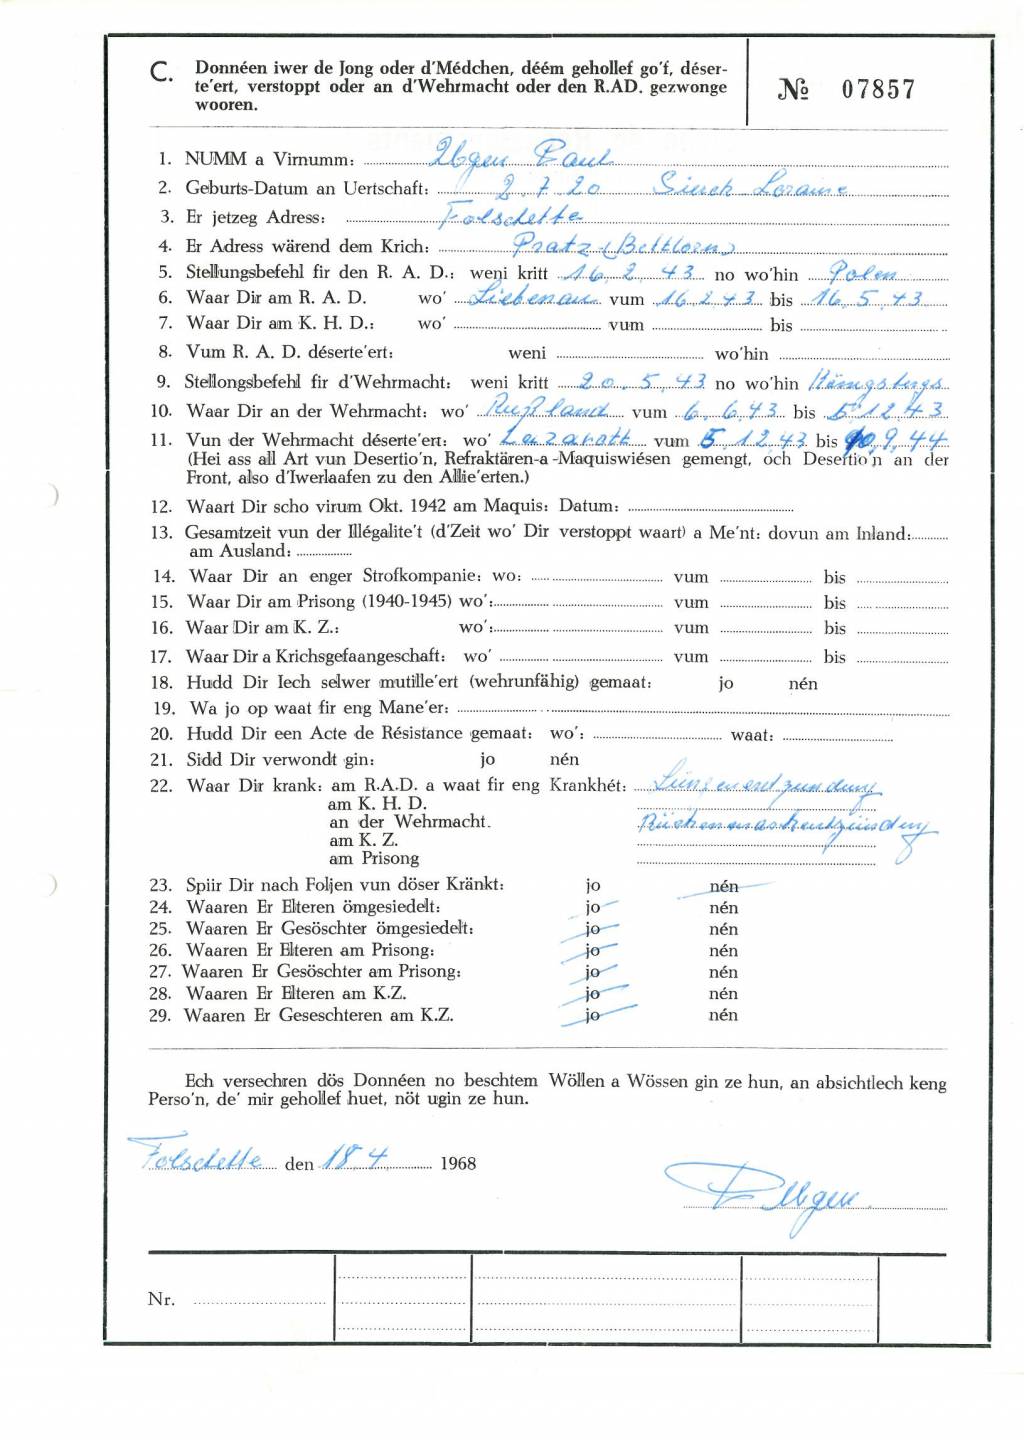 C. Donnéen iwer de Jong oder d'Médchen, déém gehollef go'f, déser-
te'ert, verstoppt oder an d'Wehrmacht oder den R.AD. gezwonge
wooren.
№ 07857
1. NUMM a Virnumm: Paul
2. Geburts-Datum an Uertschaft: 2 7 20 Sierck Loraine
3. Er jetzeg Adress: Folschette
4. Er Adress wärend dem Krich: Pratz (Bettborn)
5. Stellungsbefehl fir den R. A. D.: weni kritt 16. 2. 43 no wo'hin Polen
6. Waar Dir am R. A. D. wo' Liebenau vum 16 2 43 bis 16. 5. 43
7. Waar Dir am K. H. D.: wo' vum bis
8. Vum R. A. D. déserte'ert: weni wo'hin
9. Stellongsbefehl fir d'Wehrmacht: weni kritt 20. 5. 43 no wo'hin
10. Waar Dir an der Wehrmacht: wo' Rußland vum 6. 6. 43 bis 5. 12. 43
11. Vun der Wehrmacht déserte'ert: wo' Lazarett vum 5. 12. 43 bis 9. 44
(Hei ass all Art vun Desertio'n, Refraktären-a-Maquiswiésen gemengt, och Desertio'n an der
Front, also d'Iwerlaafen zu den Allie'erten.)
12. Waart Dir scho virum Okt. 1942 am Maquis: Datum:
13. Gesamtzeit vun der Illégalite't (d'Zeit wo' Dir verstoppt waart) a Me'nt: dovun am Inland:
am Ausland:
14. Waar Dir an enger Strofkompanie: wo: vum bis
15. Waar Dir am Prisong (1940-1945) wo': vum bis
16. Waar Dir am K. Z.: wo': vum bis
17. Waar Dir a Krichsgefaangeschaft: wo' vum bis
18. Hudd Dir Iech selwer mutille'ert (wehrunfähig) gemaat: jo nén
19. Wa jo op waat fir eng Mane'er:
20. Hudd Dir een Acte de Résistance gemaat: wo': waat:
21. Sidd Dir verwondt gin: jo nén
22. Waar Dir krank: am R.A.D. a waat fir eng Krankhét: Lungenentzundung
am K. H. D.
an der Wehrmacht.
am K. Z.
am Prisong
23. Spiir Dir nach Foljen vun döser Kränkt: jo nén
24. Waaren Er Elteren ömgesiedelt: jo nén
25. Waaren Er Gesöschter ömgesiedelt: jo nén
26. Waaren Er Elteren am Prisong: jo nén
27. Waaren Er Gesöschter am Prisong: jo nén
28. Waaren Er Elteren am K.Z. jo nén
29. Waaren Er Geseschteren am K.Z. jo nén
Ech versechren dös Donnéen no beschtem Wöllen a Wössen gin ze hun, an absichtlech keng
Perso'n, de' mir gehollef huet, nöt ugin ze hun.
Folschette den 18. 4. 1968
Nr.